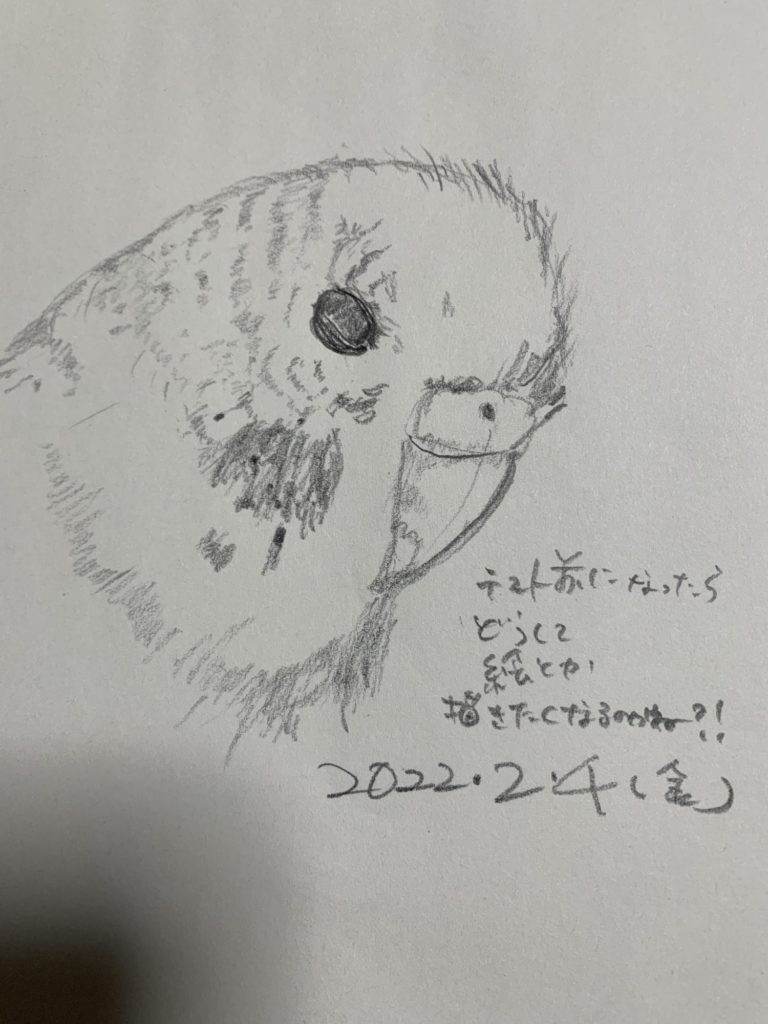 テスト前になったら
どうして
絵とか
描きたくなるのかね?!
2022.2.4(金)